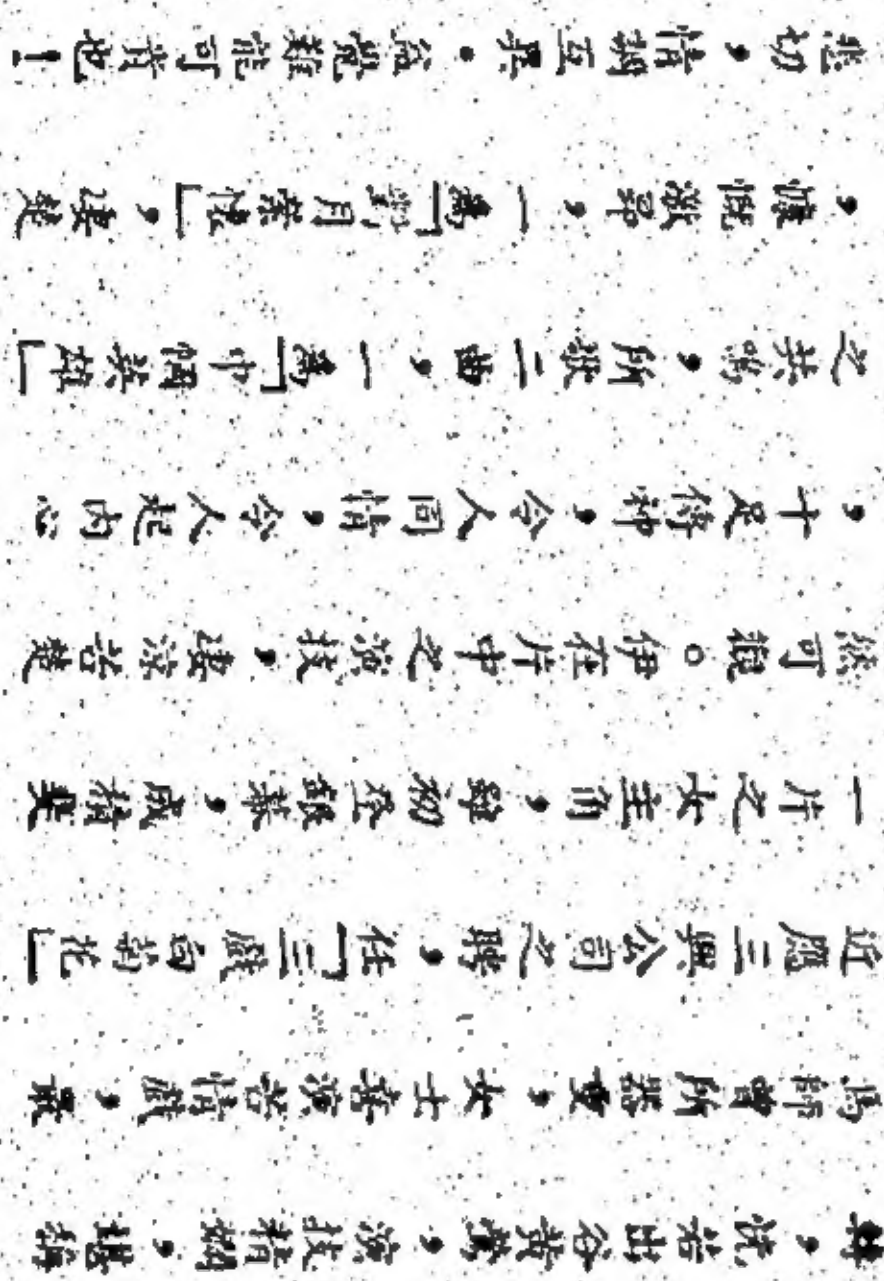 轉,恍若出谷黃鶯,演技精嫻,堪稱
馬師曾所器重,女士善演苦情戲,最
近應三興公司之聘,任「三戲白菊花」
一片之女主角,雖初登銀幕,成績斐
然可觀。伊在片中之演技,淒涼苦楚
,十足傳神,令人同情,令人起內心
之共鳴,所歌二曲,一為「巾幗英雄」
,慷慨激昂,一為「對月縈懷」,淒楚
悲切,情調互異.益覺難能可貴也!